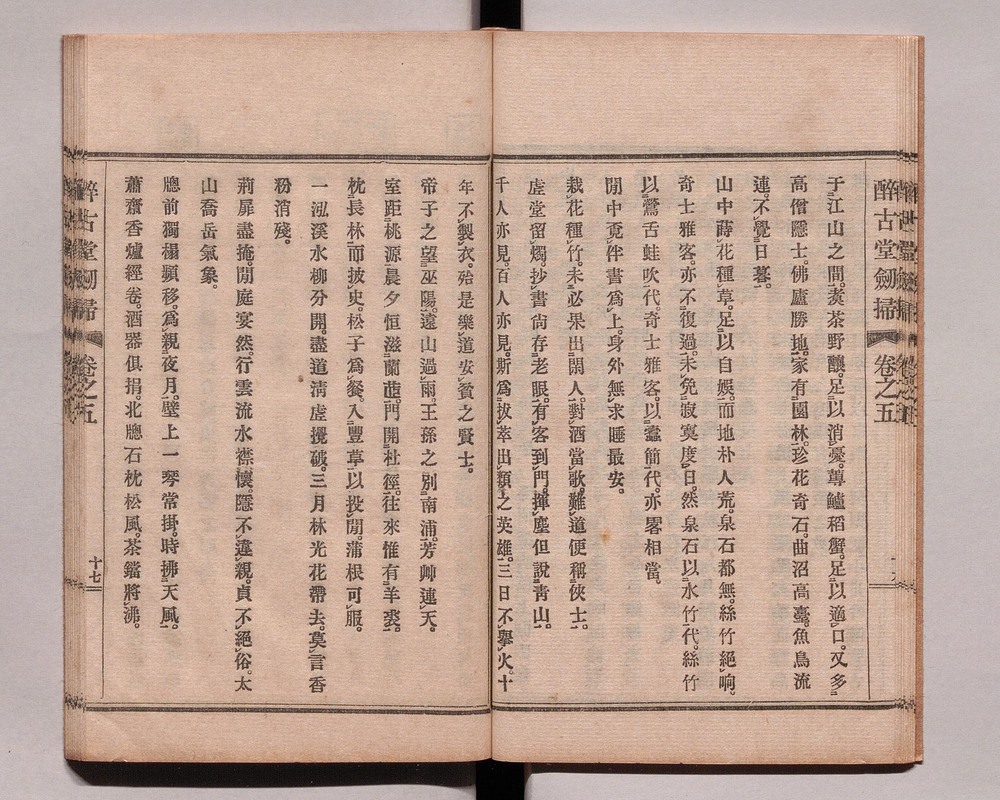 醉古堂劒掃 卷之五
于江山之間。煑茶野釀。足以消憂。蓴鱸稻蟹。足以適口。又多
高僧隱士。佛廬勝地。家有園林。珍花奇石。曲沼高臺。魚鳥流
連。不覺日暮。
山中蒔花種草。足以自娛。而地朴人荒。泉石都無。絲竹絕响。
奇士雅客。亦不復過。未免寂寞度日。然泉石以水竹代。絲竹
以鶯舌蛙吹代。奇士雅客。以蠹簡代。亦畧相當。
閒中覔伴書爲上。身外無求睡最安。
栽花種竹。未必果出閒人。對酒當歌。難道便稱俠士。
虛堂留燭。抄書尙存老眼。有客到門。揮麈但說靑山。
千人亦見。百人亦見。斯爲拔萃出類之英雄。三日不擧火。十
年不製衣。殆是樂道安貧之賢士。
帝子之望巫陽。遠山過雨。王孫之別南浦。芳艸連天。
室距桃源。晨夕恒滋蘭茝。門開杜徑。往來惟有羊裘。
枕長林而披史。松子爲餐。入豐草以投閒。蒲根可服。
一泓溪水柳分開。盡道淸虛攪破。三月林光花帶去。莫言香
粉消殘。
荊扉晝掩。閒庭宴然。行雲流水襟懷。隱不違親。貞不絕俗。太
山喬岳氣象。
牕前獨榻頻移。爲親夜月。壁上一琴常掛。時拂天風。
蕭齋香爐經卷。酒器俱捐。北牕石枕松風。茶鐺將沸。
醉古堂劒掃 卷之五 十七